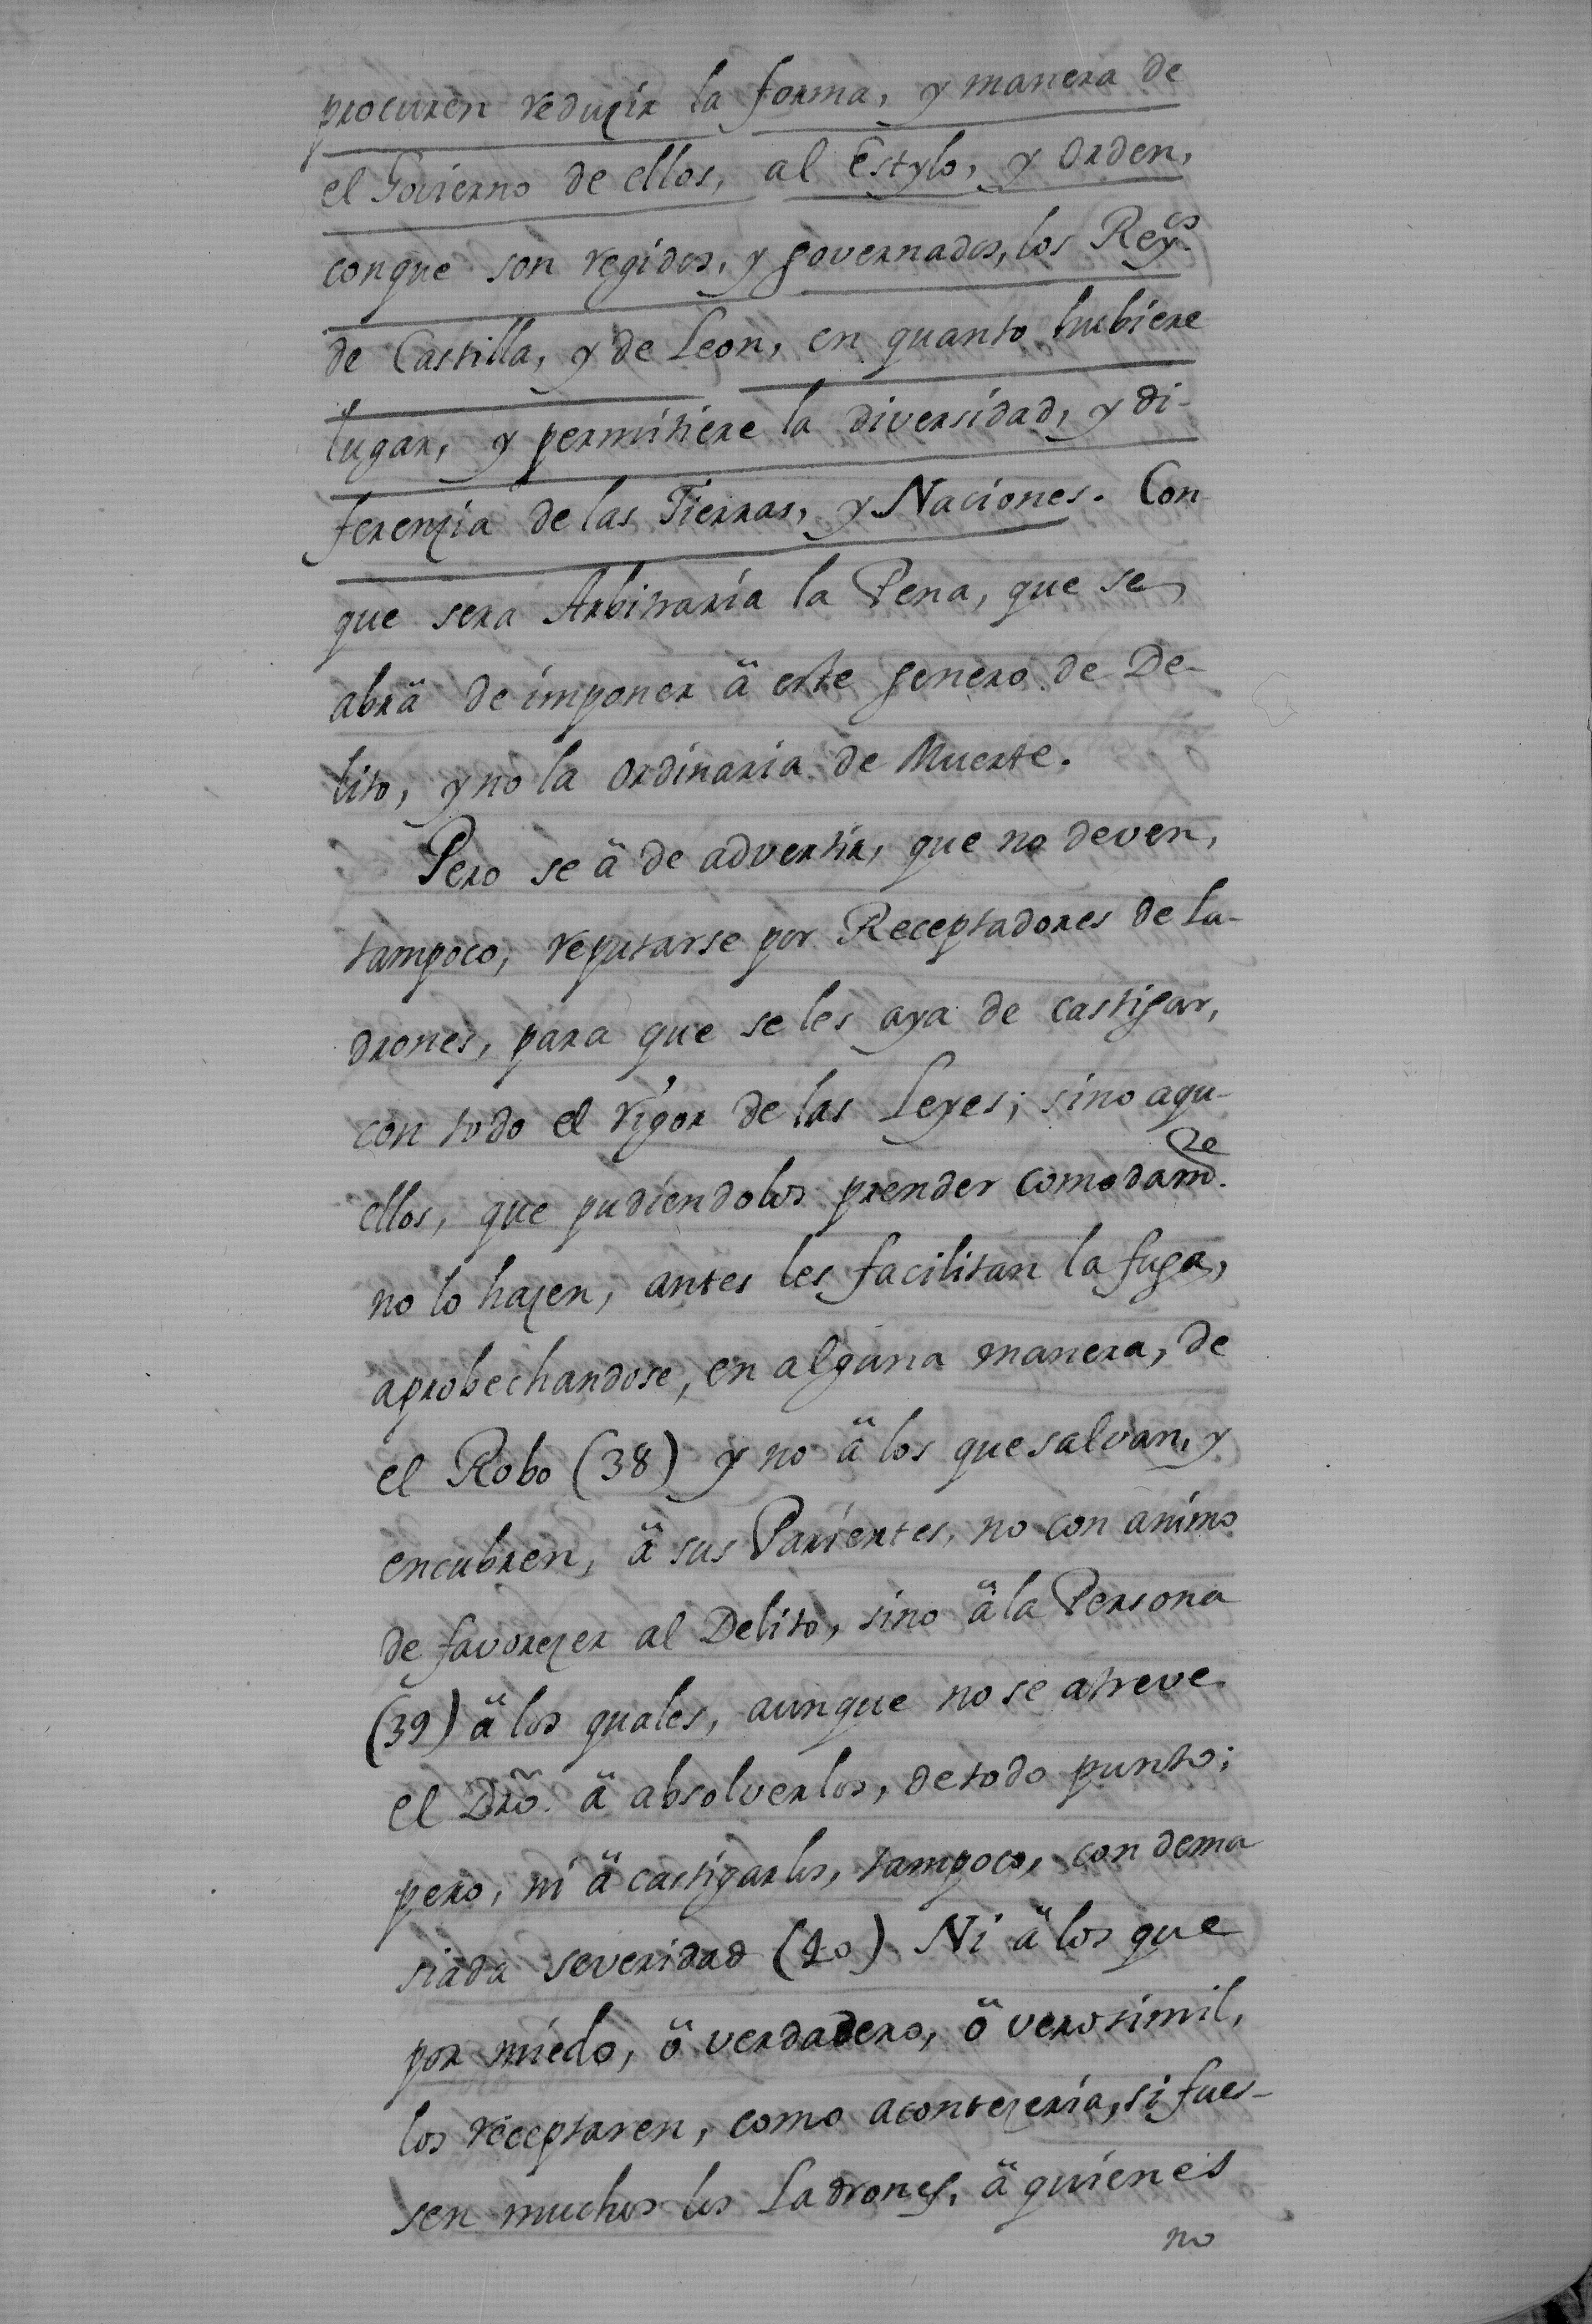 procuren reduzir la forma, y manera de
el Govierno de ellos, al Estylo, y Orden,
conque son regidos, y governados, los Reys.
de Castilla, y de Leon, en quanto hubiere
lugar, y permitiere la diversidad, y di-
ferenzia de las Tierras, y Naciones. Con
que sera Arbitraria la Pena, que se
abrä de imponer ä este genero de De-
lito, y no la Ordinaria de Muerte.
Pero se ä de advertir, que no deven,
tampoco, reputarse por Receptadores de La-
drones, para que se les aya de castigar,
con todo el rigor de las Leyes; sino aqu-
ellos, que pudiendolos prender comodamte.
no lo hazen, antes les facilitan la fuga,
aprobechandose, en alguna manera, de
el Robo (38) y no ä los que salvan, y
encubren, ä sus Parientes, no con animo
de favorezer al Delito, sino ä la Persona
(39) ä los quales, aunque no se atreve
el Dro. ä absolverlos, de todo punto;
pero, ni ä castigarlos, tampoco, con dema
siada severidad (40) Ni ä los que
por miedo, ö verdadero, ö verosimil,
los receptaren, como acontezeria, si fues-
sen muchos los Ladrones, ä quienes
no